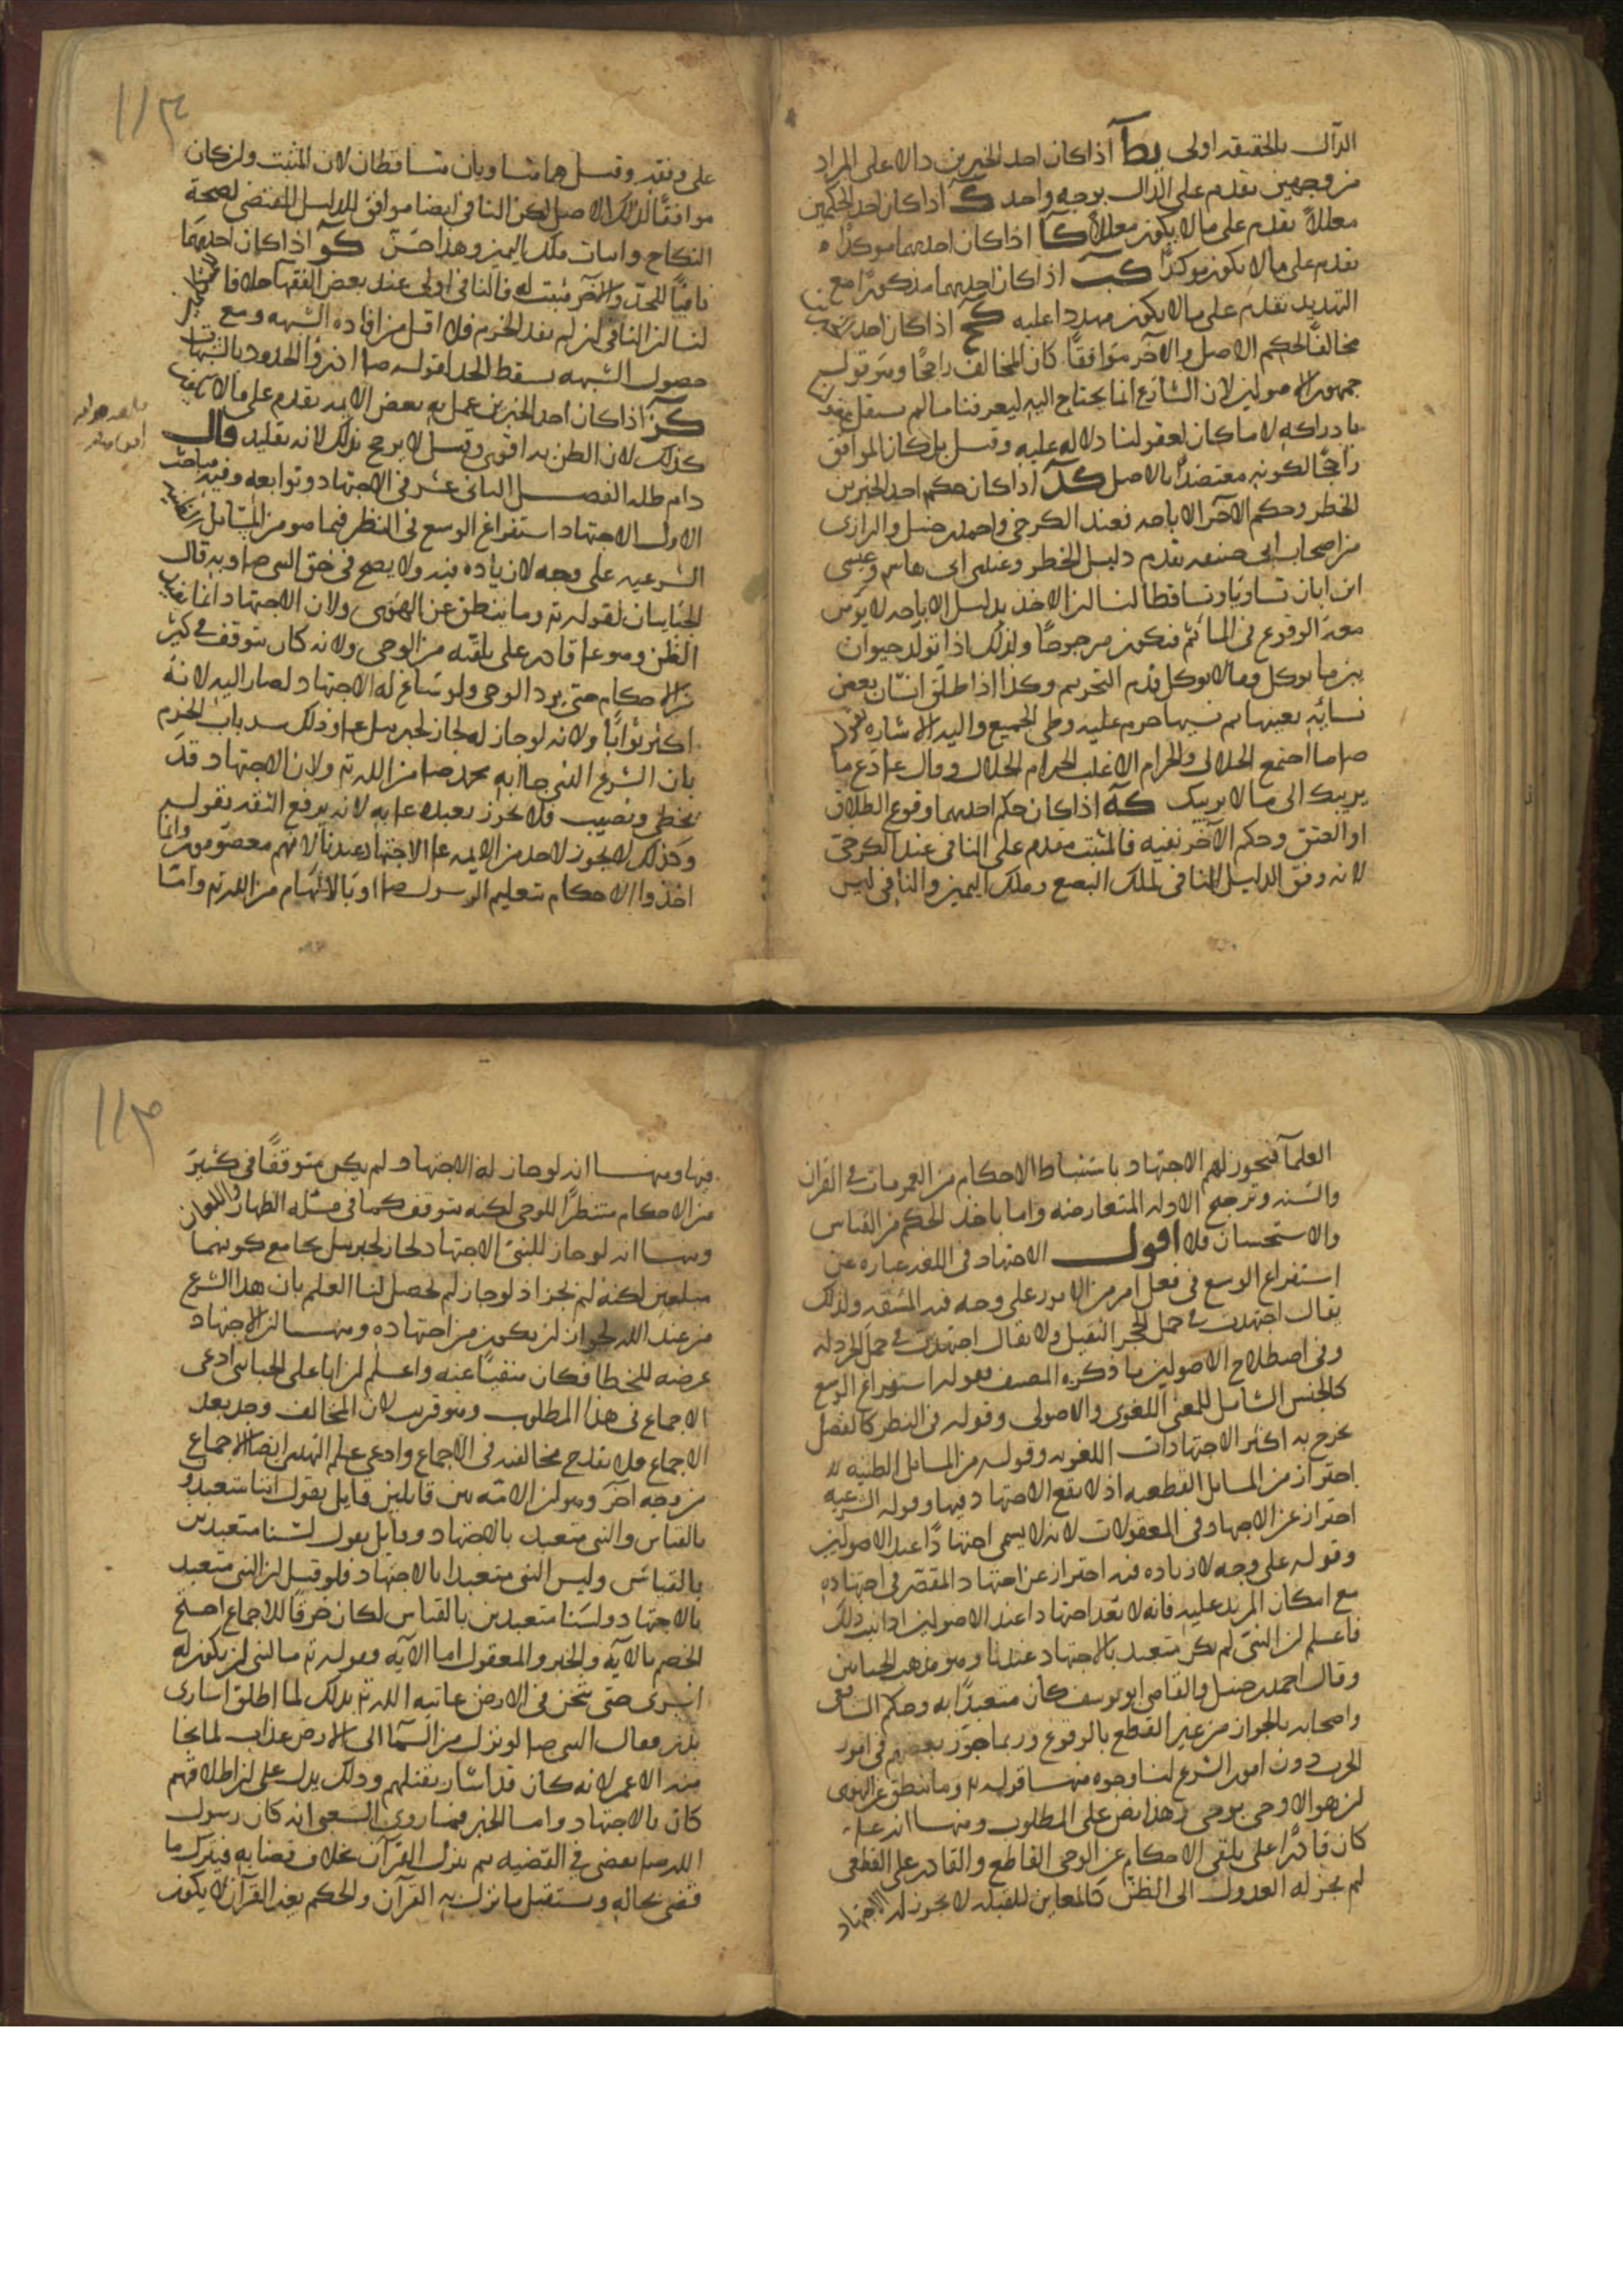 الدال بالحقيقه اولى يط اذا كان احد الخبرين دالا على المراد
من وجهين يقدم على الدال بوجه واحد ك اذا كان احد الحكمين
معللاً يقدم على ما لا يكون معللاً كا اذا كان احدهما موكدا
يقدم على ما لا يكون موكدًا كب اذا كان احدهما مذكورًا مع
التهديد يقدم على ما لا يكون مهددا عليه كج اذا كان احد الخبرين
مخالفًا لحكم الاصل والآخر موافقًا كان المخالف راجحًا وهو قول
جمهور الاصوليين لان الشارع انما يحتاج اليه ليعرفنا ما لم يستقل عقولنا
بادراكه لا ما كان لعقولنا دلاله عليه وقيل بل كان الموافق
راجحًا لكونه معتضدًا بالاصل كد اذا كان حكم احد الخبرين
الحظر وحكم الآخر الاباحه فعند الكرخى واحمد بن حنبل والرازى
من اصحاب ابى حنيفه يقدم دليل الحظر وعند ابى هاشم وعيسى
ابن ابان تساويا وتساقطا لنا ان الاخذ بدليل الاباحه لا يومن
معه الوقوع فى المأثم فيكون مرجوحًا ولذلك اذا تولد حيوان
بين ما يوكل وما لا يوكل قدم التحريم وكذا اذا طلق انسان بعض
نسائه بعينها ثم نسيها حرم عليه وطى الجميع واليه الاشاره بقوله
ص ما اجتمع الحلال والحرام الا غلب الحرام الحلال وقال ع دع ما
يريبك الى ما لا يريبك كه اذا كان حكم احدهما وقوع الطلاق
او العتق وحكم الآخر نفيه فالمثبت مقدم على النافى عند الكرخى
لانه وفق الدليل النافى لملك البضع وملك اليمين والنافى ليس
على وفقه وقيل هما متساويان متساقطان لان المثبت وان كان
موافقًا لذلك الاصل لكن النافى ايضا موافق للدليل المقتضى لصحة
النكاح واثبات ملك اليمين وهذا حسن كو اذا كان احدهما
نافيًا للحد والآخر مثبت له فالنافى اولى عند بعض الفقهآ خلافا
لنا ان النافى ان لم يفد الجزم فلا اقل من افاده الشبهه ومع
حصول الشبهه يسقط الحد لقوله ص ادرؤا الحدود بالشبهات
كز اذا كان احد الخبرين عمل به بعض الايمه يقدم على ما لا يكون
كذلك لان الظن به اقوى وقيل لا يرجح بذلك لانه تقليد قال
دام ظله الفصل الثانى عشر فى الاجتهاد وتوابعه وفيه مباحث
الاول الاجتهاد استفراغ الوسع فى النظر فيما هو من المسائل الظنيه
الشرعيه على وجه لا زياده فيه ولا يصح فى حق النبى ص وبه قال
الجبائيان لقوله تع وما ينطق عن الهوى ولان الاجتهاد انما يفيد
الظن وهو ع قادر على تلقيه من الوحى ولانه كان يتوقف فى كثير
من الاحكام حتى يرد الوحى ولو ساغ له الاجتهاد لصار اليه لانه
اكثر ثوابًا ولانه لو جاز له لجاز لجبريل ع وذلك سد باب الجزم
بان الشرع الذى جا به محمد ص من الله تع ولان الاجتهاد قد
يخطى ويصيب فلا يجوز تعبده ع به لانه يرفع الثقه بقوله
وكذلك لا يجوز لاحد من الايمه ع الاجتهاد عندنا لانهم معصومون وانما
اخذوا الاحكام بتعليم الرسول ص او بالالهام من الله تع واما
العلمآ فيجوز لهم الاجتهاد باستنباط الاحكام من العمومات فى القرآن
والسنه وترجيح الادله المتعارضه واما باخذ الحكم من القياس
والاستحسان فلا اقول الاجتهاد فى اللغه عباره عن
استفراغ الوسع فى فعل امر من الامور على وجه فيه المشقه ولذلك
يقال اجتهدت فى حمل الحجر الثقيل ولا يقال اجتهدت فى حمل الخردله
وفى اصطلاح الاصوليين ما ذكره المصنف فقوله استفراغ الوسع
كالجنس الشامل للمعنى اللغوى والاصولى وقوله فى النظر كالفصل
يخرج به اكثر الاجتهادات اللغويه وقوله من المسائل الظنيه
احتراز من المسائل القطعيه اذ لا يقع الاجتهاد فيها وقوله الشرعيه
احتراز عن الاجتهاد فى المعقولات لانه لا يسمى اجتهادًا عند الاصوليين
وقوله على وجه لا زياده فيه احتراز عن اجتهاد المقصر فى اجتهاده
مع امكان المزيد عليه فانه لا يعد اجتهادا عند الاصوليين اذا ثبت ذلك
فاعلم ان النبى لم يكن متعبد بالاجتهاد عندنا وهو مذهب الجبائيين
وقال احمد بن حنبل والقاضى ابو يوسف كان متعبدًا به وحكم الشافعى
واصحابه بالجواز من غير القطع بالوقوع وربما جوز بعضهم فى امور
الحرب دون امور الشرع لنا وجوه منها قوله تع وما ينطق عن الهوى
ان هو الا وحى يوحى وهذا نص على المطلوب ومنها انه ع
كان قادرًا على تلقى الاحكام عن الوحى القاطع والقادر على القطعى
لم يجز له العدول الى الظن كالمعاين للقبله لا يجوز له الاجتهاد
فيها ومنها انه لو جاز له الاجتهاد لم يكن متوقفًا فى كثير
من الاحكام منتظرًا للوحى لكنه يتوقف كما فى مسئله الظهار واللعان
ومنها انه لو جاز للنبى الاجتهاد لجاز لجبريل بجامع كونهما
مبلغين لكنه لم يجز اذ لو جاز لم يحصل لنا العلم بان هذا الشرع
من عند الله لجواز ان يكون من اجتهاده ومنها ان الاجتهاد
عرضه للخطا فكان منفيًا عنه واعلم ان ابا على الجبائى ادعى
الاجماع فى هذا المطلوب وهو قريب لان المخالف وجد بعد
الاجماع فلا يقدح مخالفته فى الاجماع وادعى علم الهدى ايضا الاجماع
من وجه آخر وهو ان الامه بين قايلين قايل يقول اننا متعبدون
بالقياس والنبى متعبد بالاجتهاد وقايل يقول لسنا متعبدين
بالقياس وليس النبى متعبدا بالاجتهاد فلو قيل ان النبى متعبد
بالاجتهاد ولسنا متعبدين بالقياس لكان خرقًا للاجماع احتج
الخصم بالآيه والخبر والمعقول اما الآيه فقوله تع ما كان لنبى ان يكون له
اسرى حتى يثخن فى الارض عاتبه الله تع بذلك لما اطلق اسارى
بدر فقال النبى ص لو نزل من السمآ الى الارض عذاب لما نجا
منه الا عمر لانه كان قد اشار بقتلهم وذلك يدل على ان اطلاقهم
كان بالاجتهاد واما الخبر فما روى الشعبى انه كان رسول
الله ص يقضى فى القضيه ثم ينزل القرآن بخلاف قضايه فيترك ما
قضى بحاله ويستقبل ما نزل به القرآن والحكم بغير القرآن لا يكون